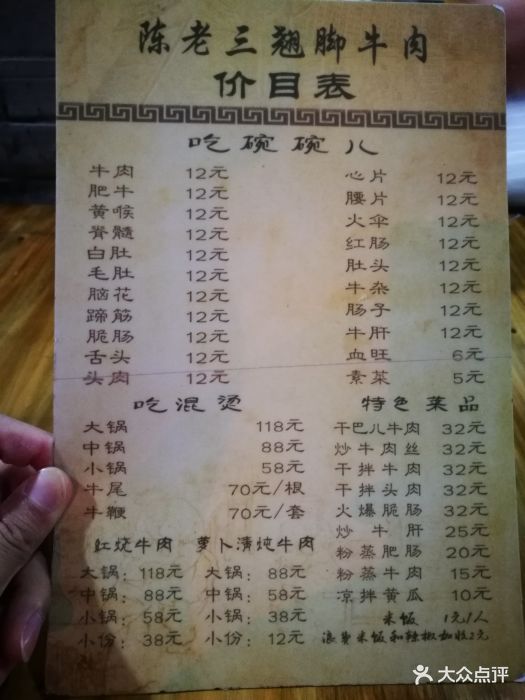 陈老三翘脚牛肉
价目表
吃碗碗儿
牛肉 12元
肥牛 12元
黄喉 12元
脊髓 12元
白肚 12元
毛肚 12元
脑花 12元
蹄筋 12元
脆肠 12元
舌头 12元
头肉 12元
心片 12元
腰片 12元
火伞 12元
红肠 12元
肚头 12元
牛杂 12元
肠子 12元
牛肝 12元
血旺 6元
素菜 5元
吃混烫
大锅 118元
中锅 88元
小锅 58元
牛尾 70元/根
牛鞭 70元/套
特色菜品
干巴儿牛肉 32元
炒牛肉丝 32元
干拌牛肉 32元
干拌头肉 32元
火爆脆肠 32元
炒牛肝 25元
粉蒸肥肠 20元
粉蒸牛肉 15元
凉拌黄瓜 10元
米饭 1元/人
浪费米饭和辣椒加收2元
红烧牛肉
大锅：118元
中锅：88元
小锅：58元
小份：38元
萝卜清炖牛肉
大锅：88元
中锅：58元
小锅：38元
小份：12元
大众点评